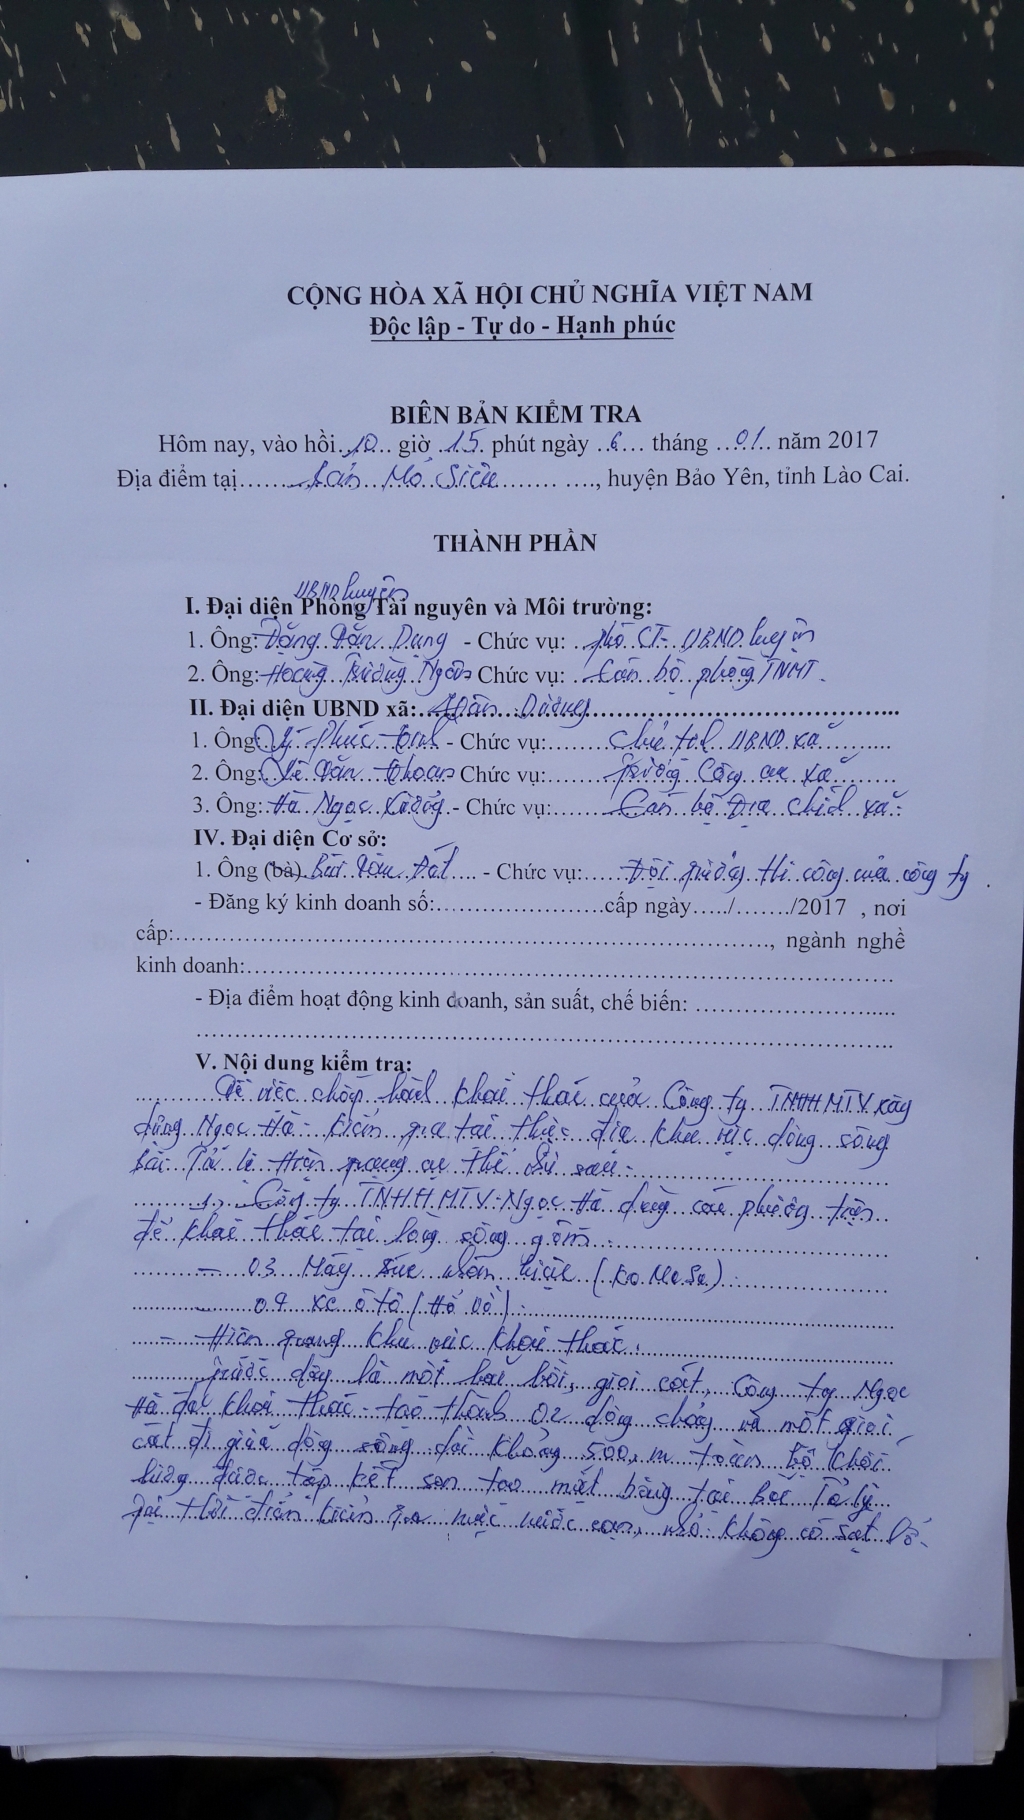 CỘNG HÒA XÃ HỘI CHỦ NGHĨA VIỆT NAM
Độc lập - Tự do - Hạnh phúc
BIÊN BẢN KIỂM TRA
Hôm nay, vào hồi 10 giờ 15 phút ngày 6 tháng 01 năm 2017
Địa điểm tại Bản Mỏ Siêu, huyện Bảo Yên, tỉnh Lào Cai.
THÀNH PHẦN
UBND huyện
I. Đại diện Phòng Tài nguyên và Môi trường:
1. Ông: Đặng Văn Dung - Chức vụ: phó CT- UBND huyện
2. Ông: Hoàng Trường Ngân Chức vụ: Cán bộ phòng TNMT.
II. Đại diện UBND xã: Dương
1. Ông: Lý Phúc - Chức vụ: Chủ tịch UBND xã
2. Ông: Văn Chức vụ: Trưởng Công an xã
3. Ông: Hà Ngọc - Chức vụ: Cán bộ Địa chính xã.
IV. Đại diện Cơ sở:
1. Ông (bà) Bùi Văn Đát - Chức vụ: Đội trưởng thi công của công ty
- Đăng ký kinh doanh số: cấp ngày / /2017 , nơi
cấp: , ngành nghề
kinh doanh:
- Địa điểm hoạt động kinh doanh, sản suất, chế biến:
V. Nội dung kiểm tra:
Về việc chấp hành khai thác của Công ty TNHH MTV xây
dựng Ngọc Hà - kiểm tra tại thực địa khu vực dòng sông
Bãi Tả lè Hiện trạng cụ thể như sau:
1. Công ty TNHH MTV Ngọc Hà dùng các phương tiện
để khai thác tại lòng sông gồm:
- 03 Máy xúc nhãn hiệu (Ko Ma Su)
04 xe ô tô (Hổ Vồ)
- Hiện trạng khu vực khai thác.
trước đây là một bãi bồi, giọi cát, Công ty Ngọc
Hà đã khai thác tạo thành 02 dòng chảy và một giọi
cát ở giữa dòng sông dài khoảng 500 m toàn bộ khối
lượng được tập kết san tạo mặt bằng tại Bãi Tả lý
tại thời điểm kiểm tra mực nước cạn, nhỏ không có sạt lở.